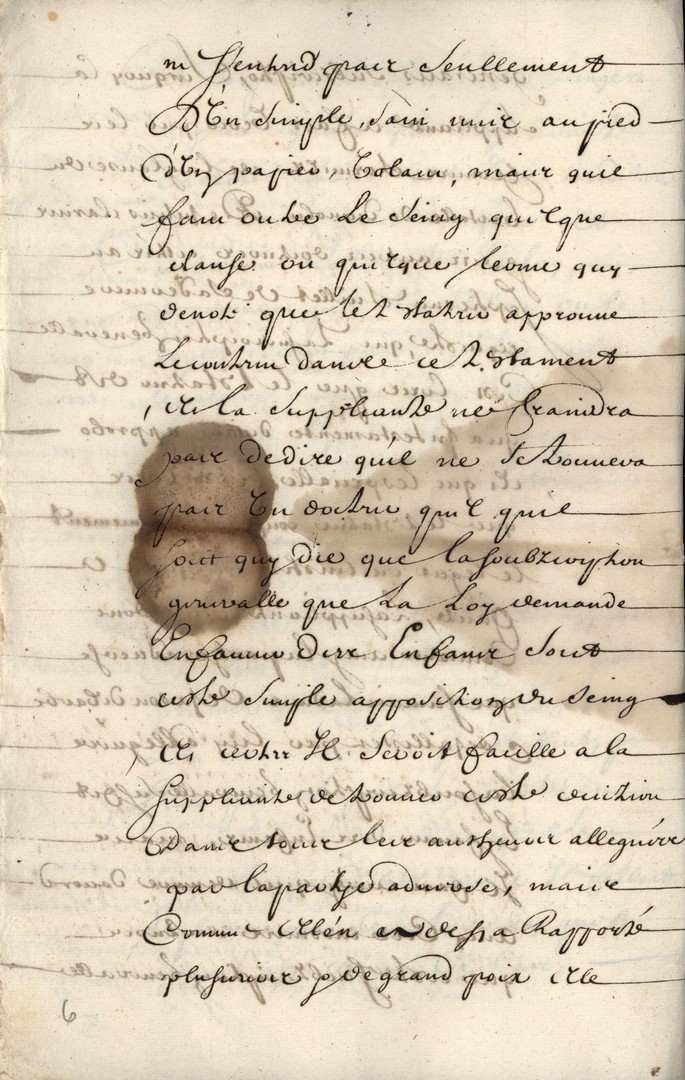 n Jentend pas Seullement
Un Simple, Sain mis au pied
d'Un papier, Volant, mais quil
faut outre Le Seing quelque
clause ou quelque terme quy
denote que le testateur approuve
Le contenu dans ce testament
Et la Suppliante ne Craindra
pas de dire quil ne Se trouvera
pas Un docteur quel quil
Soict quy die que la Soubzcription
generalle que La Loy demande
En faveur des Enfans Soit
cette Simple apposition du Seing
Et certes Il Seroit facille a la
Suppliante de trouver cette decition
Dans tous les autheurs allegués
par la partye adverse, mais
Comme Elle en a desja Rapporté
plusieurs de grand poix Elle
6